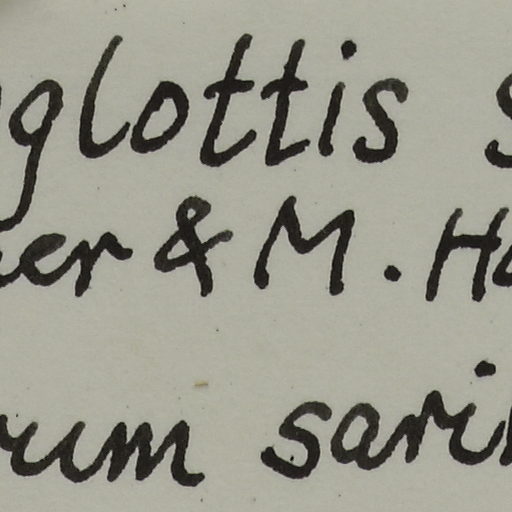 glottis s
er & M. Ha
rum sari